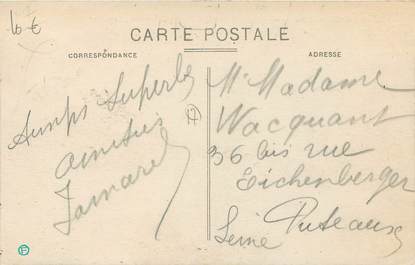 10 €
CARTE POSTALE
CORRESPONDANCE
ADRESSE
Superbe
amitiés
Mr Madame
Wacquant
36 bis rue
Eichenberger
Puteaux
Seine